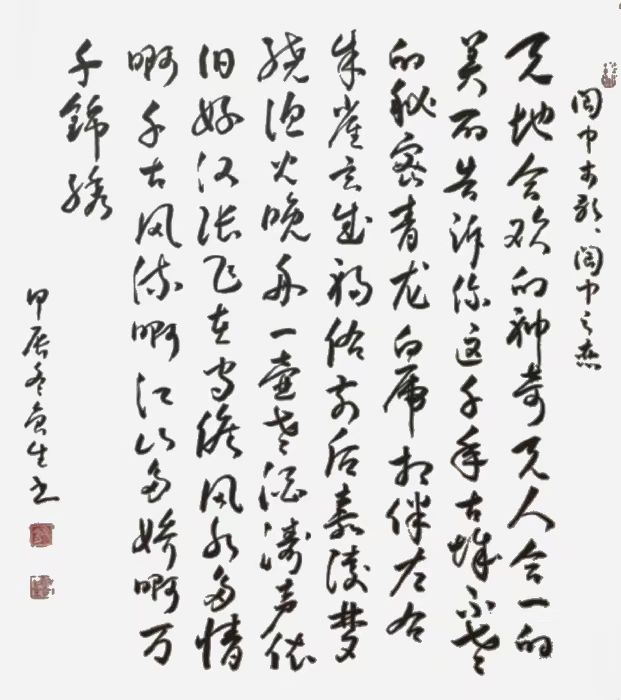 阆中市歌、阆中之恋
天地合欢的神奇天人合一的
美丽告诉你这千年古城不老
的秘密青龙白虎相伴左右
朱雀玄武福佑前后嘉陵梦
绕渔火晚舟一壶老酒涛声依
旧好汉张飞在守候风水多情
啊千古风流啊江山多娇啊万
千锦绣
甲辰冬生书